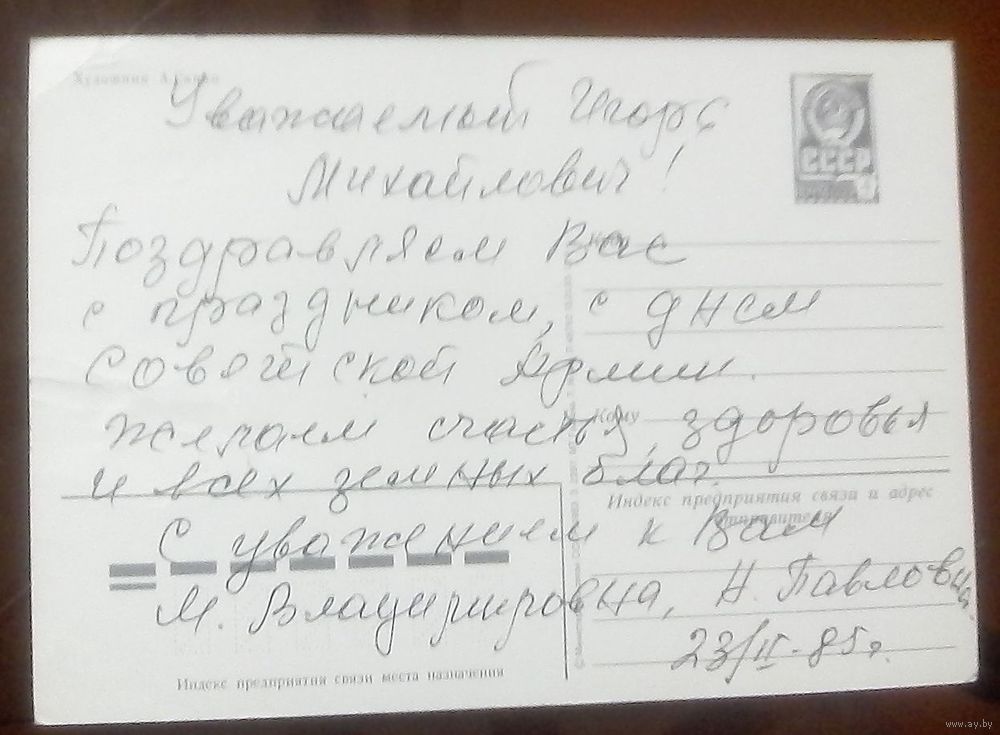 Художник
Уважаемый Игорь
Михайлович!
СССР
Поздравляем Вас
с праздником, с днем
Советской Армии.
Кому
Желаем счастья, здоровья
и всех земных благ.
Индекс предприятия связи и адрес
отправителя
С уважением к Вам
М. Владимировна, Н. Павловна
23/II-85г.
Индекс предприятия связи места назначения
www.ay.by